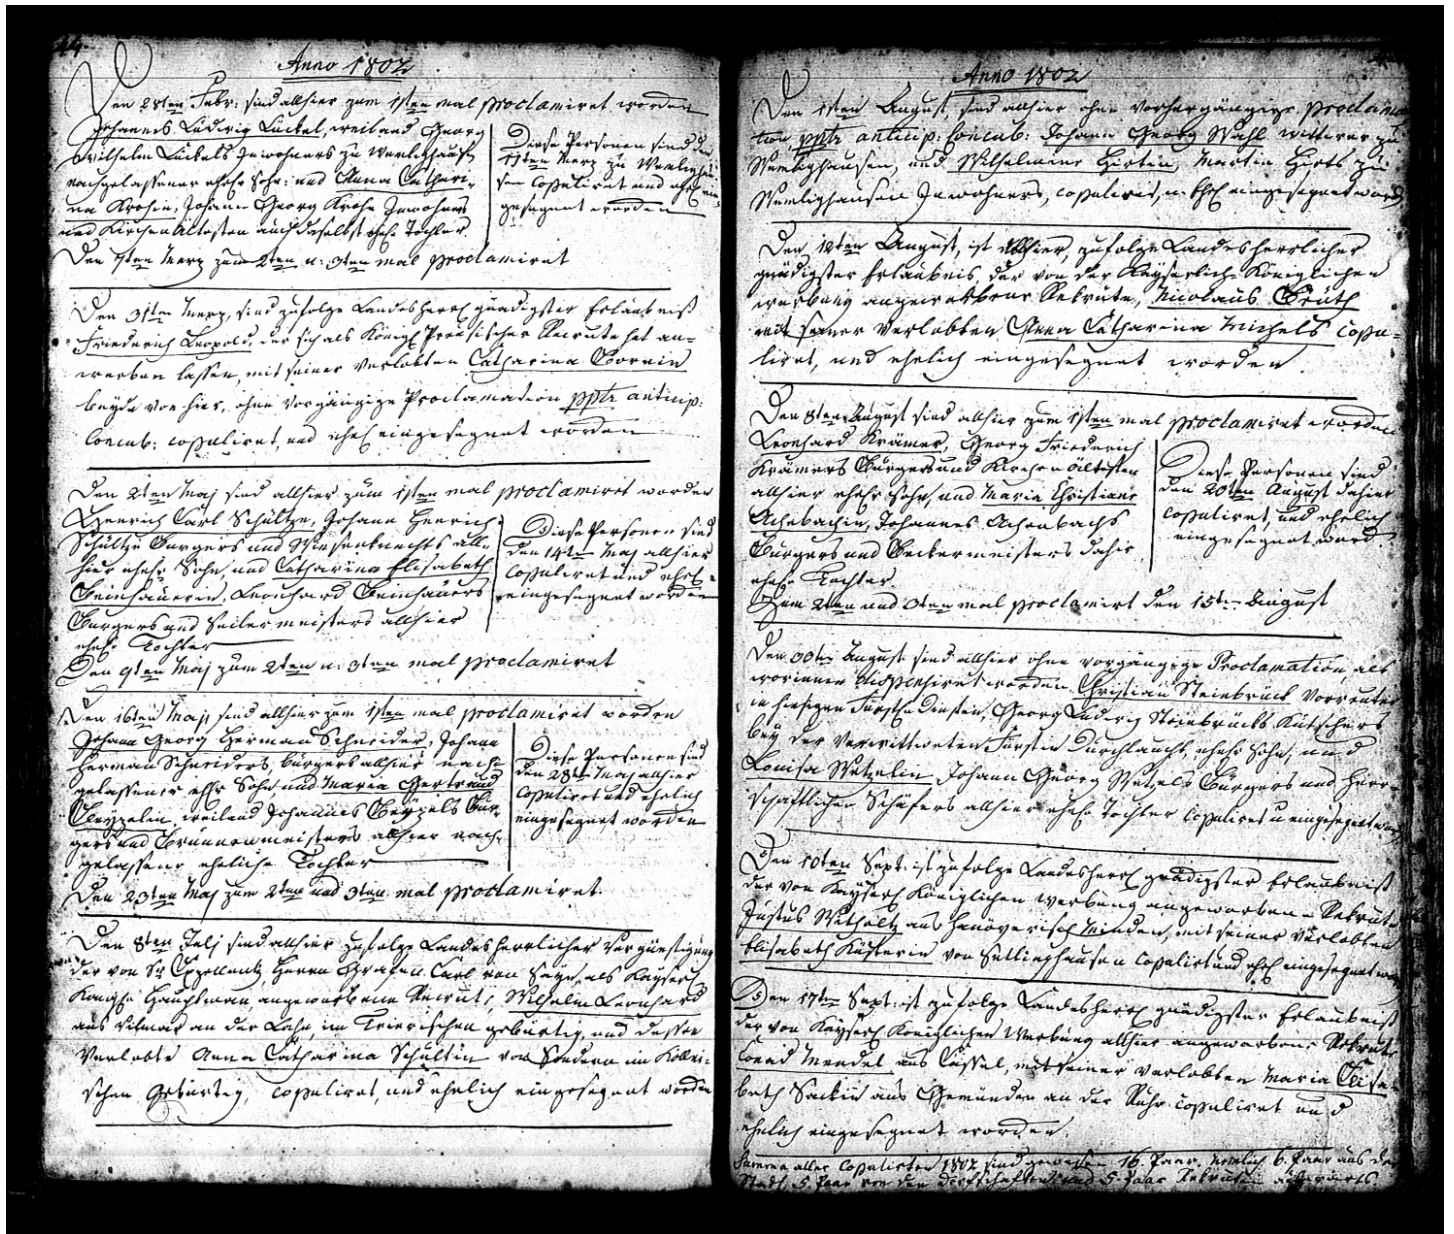 44.
Anno 1802
Den 28ten Febr: sind allhier zum 1sten mal proclamiret worden
Johannes Ludwig Lückel, weiland Georg
Wilhelm Lückels Inwohners zu
nachgelassener ehel. Sohn und Anna Cathari-
na Krohin, Johann Georg Krohs Inwohners
und Kirchenältesten auch daselbst ehel. Tochter.
Diese Personen sind den
Merz zu
sen copuliret und ehel. ein-
gesegnet worden
Den 7ten Merz zum 2ten u. 3ten mal proclamiret
Den 31ten Merz, sind zufolge Landesherrl. gnädigster Erlaubniß
Friederich Leopold, der sich als Königl. Preusischer Recrute hat an-
werben lassen, mit seiner Verlobten Catharina
beyde von hier, ohne vorgängige Proclamation pptr anticip:
Concub: copuliret, und ehel. eingesegnet worden
Den 2ten Maj sind allhier zum 1sten mal proclamiret worden
Henrich Carl Schültze, Johann Henrich
Schültze Burgers und Wiesenknechts all-
hier ehel. Sohn, und Catharina Elisabeth
Beinhauerin, Leonhard Beinhauers
Burgers und Seilermeisters allhier
ehel. Tochter
Diese Personen sind
den 14ten Maj allhier
copuliret und ehel.
eingesegnet worden
Den 9ten Maj zum 2ten u. 3ten mal proclamiret
Den 16ten Maji sind allhier zum 1sten mal proclamiret worden
Johann Georg Herman Schneider, Johann
Herman Schneiders, burgers allhier nach-
gelassener ehl. Sohn und Maria Gertraud
weiland Johannes Bur-
gers und Brunnenmeisters allhier nach-
gelassene eheliche Tochter
Diese Personen sind
den 28ten Maj allhier
copuliret und ehelich
eingesegnet worden
Den 23ten Maj zum 2ten und 3ten mal proclamiret
Den 8ten Julj sind allhier zufolge Landesherrlicher Vergünstigung
der von Sr. Excellentz, Herrn Grafen Carl von Sayn, als Kayserl.
Königl. Hauptman angeworbene Recrut, Wilhelm Leonhard
aus Vilmar an der Lahn, im Trierischen gebürtig, und dessen
Verlobte Anna Catharina Schultin von Sondern im Kölni-
schen gebürtig, copuliret, und ehelich eingesegnet worden
Anno 1802
Den 1sten August, sind allhier ohne vorhergängige proclama-
tion pptr anticip: Concub: Johann Georg Wahl wittwer zu
Wemlighausen, und Wilhelmine Hirtin, Martin Hirts zu
Wemlighausen Inwohners, copuliret, u. ehel. eingesegnet word.
Den 12ten August, ist allhier, zufolge Landesherrlicher
gnädigster Erlaubnis der von der Kayserlich Königlichen
werbung angeworbene Rekrute, Nicolaus
mit seiner Verlobten Anna Catharina Michels copu-
liret, und ehelich eingesegnet worden.
Den 8ten August sind allhier zum 1sten mal proclamiret worden
Leonhard Krämer, Georg Friederich
Krämers Burgers und Kirchen ältesten
allhier ehel. Sohn, und Maria Christiane
Achebachin, Johannes Achenbachs
Burgers und Beckermeisters dahir
ehel. Tochter.
Diese Personen sind
den 20ten August dahier
copuliret, und ehelich
eingesegnet word.
Zum 2ten und 3ten mal proclamirt den 15ten August
Den 30ten August sind allhier ohne vorgängige Proclamation, als
worinnen dispensiret worden Christian Steinbrück Vorreuter
in hiesigen Fürstl. Diensten, Georg Ludwig Steinbrücks Kutschers
bey der verwittweten Fürstin Durchlaucht, ehel. Sohn, und
Louisa Wetzelin, Johann Georg Wetzels Burgers und Herr-
schaftlicher Schäfers allhier ehel. Tochter copuliret u eingesegnet word.
Den 10ten Sept. ist zufolge Landesherrl. gnädigster Erlaubniß
der von Kayserl. Königlichen Werbung angeworbene Rekrut
Justus aus Hanöverisch Minden, mit seiner Verlobten
Elisabeth Küsterin von copuliret und ehel. eingesegnet word.
Den 17ten Sept. ist zufolge Landesherrl. gnädigster Erlaubniß
der von Kayserl. Königlichen Werbung allhier angeworbene Rekrut
Conrad Mendel aus Cassel, mit seiner Verlobten Maria Elisa-
beth aus Gemünden an der copuliret und
ehelich eingesegnet worden.
Summa aller Copulirten 1802 sind gewesen 16 Paar. nemlich 6. Paar aus der
Stadt, 5 Paar von den Dorfschaften und 5. Paar Rekruten